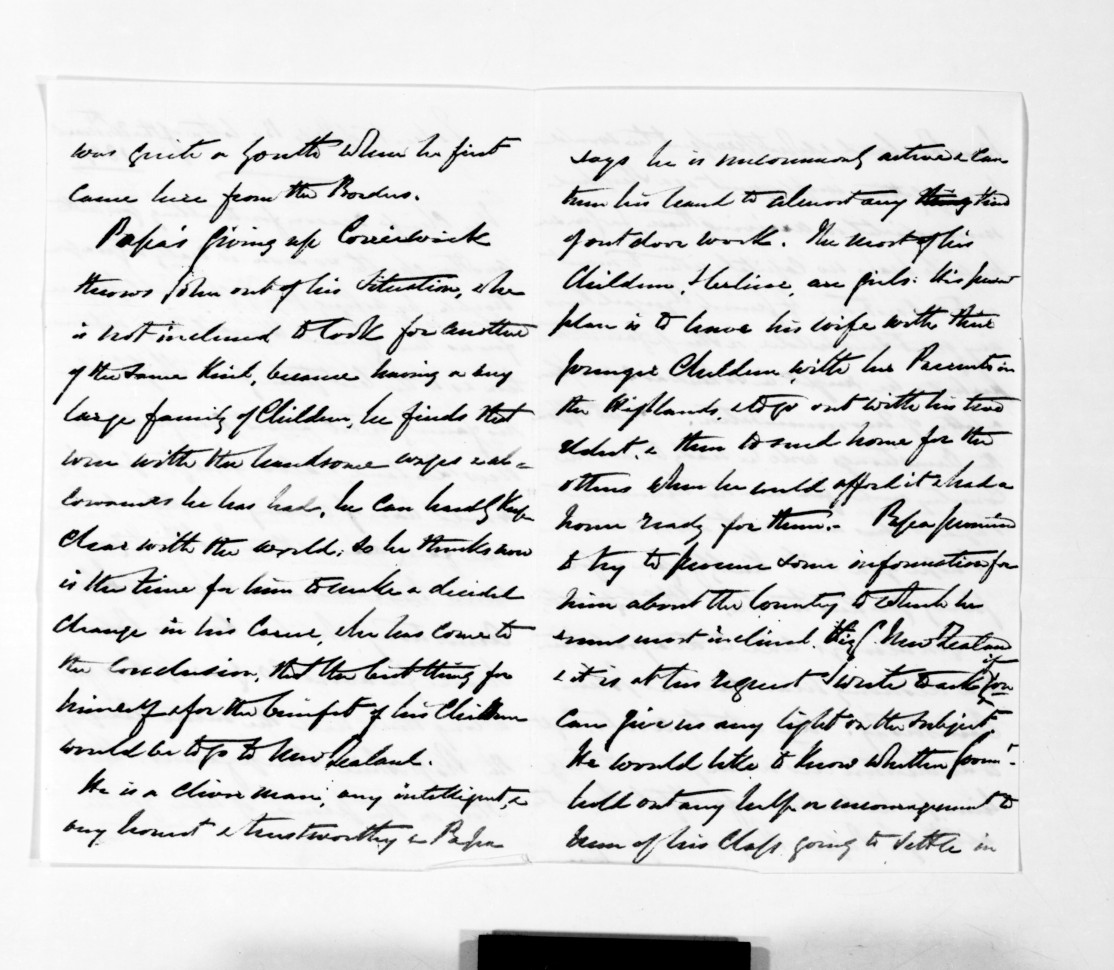 was quite a youth when he first
came here from the Borders.
Papa's giving up Correwick
throws John out of his situation, & he
is not inclined to look for another
of the same kind, because having a very
large family of Children, he finds that
even with the handsome wages & al=
lowances he has had, he can hardly keep
clear with the world; so he thinks now
is the time for him to make a decided
change in his Career, & he has come to
the conclusion, that the best thing for
himself & for the benefit of his Children
would be to go to New Zealand.
He is a clever man, very intelligent &
very honest & trustworthy & Papa
says he is uncommonly active & can
turn his hand to almost any thing kind
of out door work. The most of his
Children, I believe, are girls: His present
plan is to leave his wife with their
younger Children with her Parents in
the Highlands, & to go out with his two
eldest, & then to send home for the
others when he could afford it & had a
home ready for them. Papa promised
to try to procure some information for
him about the Country to which he
seems most inclined Viz. New Zealand
& it is at his request I write to ask if you
can give us any light on the subject
He would like to know whether Govmt.
hold out any help or encouragement to
men of his Class going to settle in